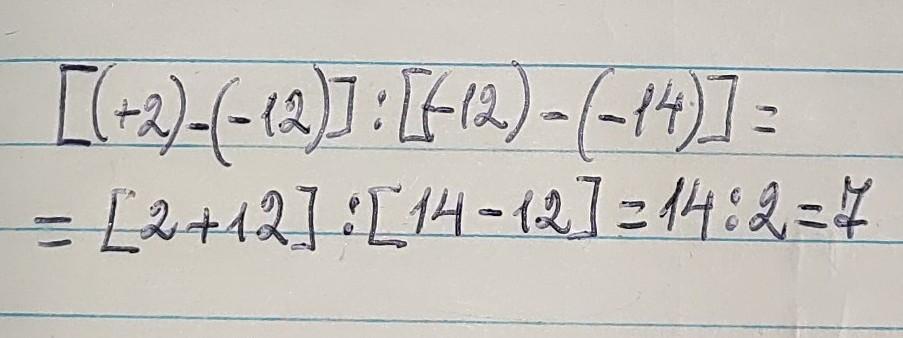 [(+2)-(-12)]:[(-12)-(-14)]=
=[2+12]:[14-12]=14:2=7